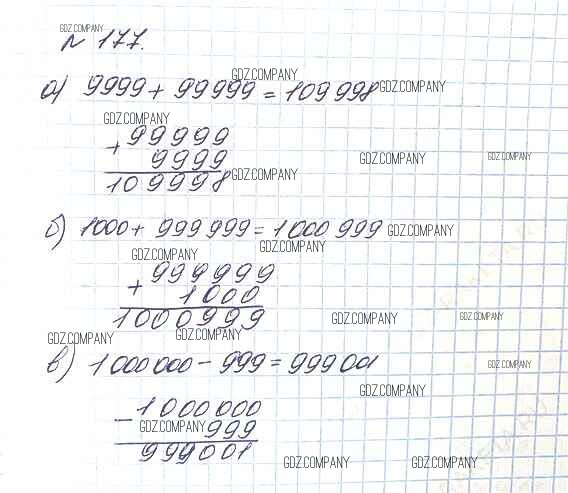 GDZ.COMPANY
№ 177.
GDZ.COMPANY
а) 9999 + 99999 = 109 998 GDZ.COMPANY
GDZ.COMPANY
+ 99999
GDZ.COMPANY GDZ.COMPANY
9999
109998 GDZ.COMPANY
б) 1000 + 999 999 = 1 000 999 GDZ.COMPANY
GDZ.COMPANY GDZ.COMPANY
+ 999999
1000
1000999 GDZ.COMPANY GDZ.COMPANY
GDZ.COMPANY GDZ.COMPANY
в) 1 000 000 - 999 = 999 001 GDZ.COMPANY
GDZ.COMPANY
- 1000000
GDZ.COMPANY 999
999001
GDZ.COMPANY GDZ.COMPANY